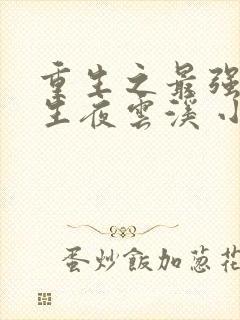 重生之最强
生夜雲溪小
蛋炒飯加葱花